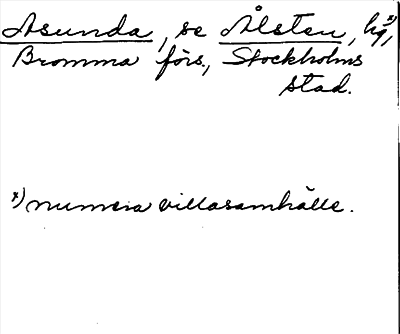 Åsunda, se Ålsten, hg,ˣ⁾
Bromma förs., Stockholms
stad.
x) numera villasamhälle.